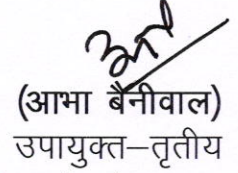 (आभा बैनीवाल)
उपायुक्त–तृतीय